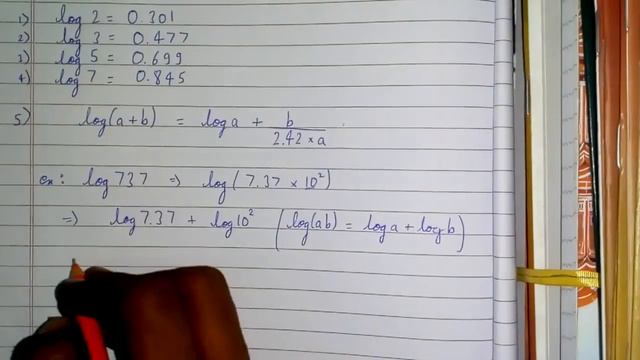 1) log 2 = 0.301
2) log 3 = 0.477
3) log 5 = 0.699
4) log 7 = 0.845
5) log(a+b) = log a + b / 2.42 × a
ex: log 737 ⇒ log(7.37 × 10²)
⇒ log 7.37 + log 10² (log(ab) = log a + log b)